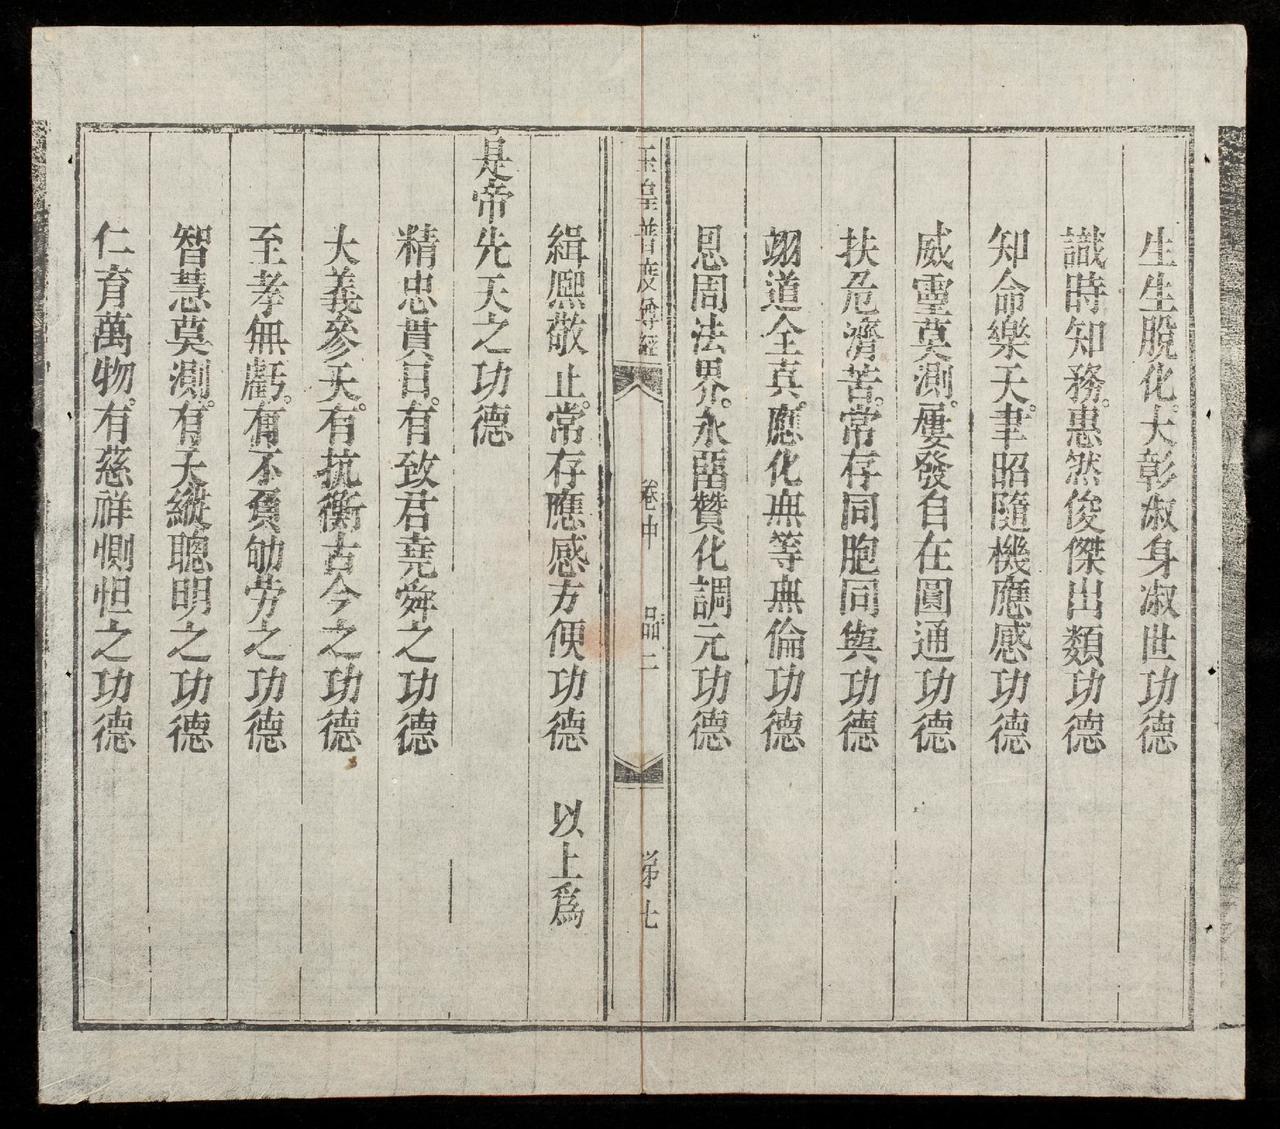 生生脫化。大彰淑身淑世功德
識時知務。惠然俊傑出類功德
知命樂天。聿昭隨機應感功德
威靈莫測。屢發自在圓通功德
扶危濟苦。常存同胞同與功德
翊道全真。應化無等無倫功德
恩周法界。永畱贊化調元功德
玉皇普度尊經 卷中 品二 第七
緝熙敬止。常存應感方便功德 以上爲
是帝先天之功德
精忠貫日。有致君堯舜之功德
大義參天。有抗衡古今之功德
至孝無虧。有不負劬勞之功德
智慧莫測。有天縱聰明之功德
仁育萬物。有慈祥惻怛之功德